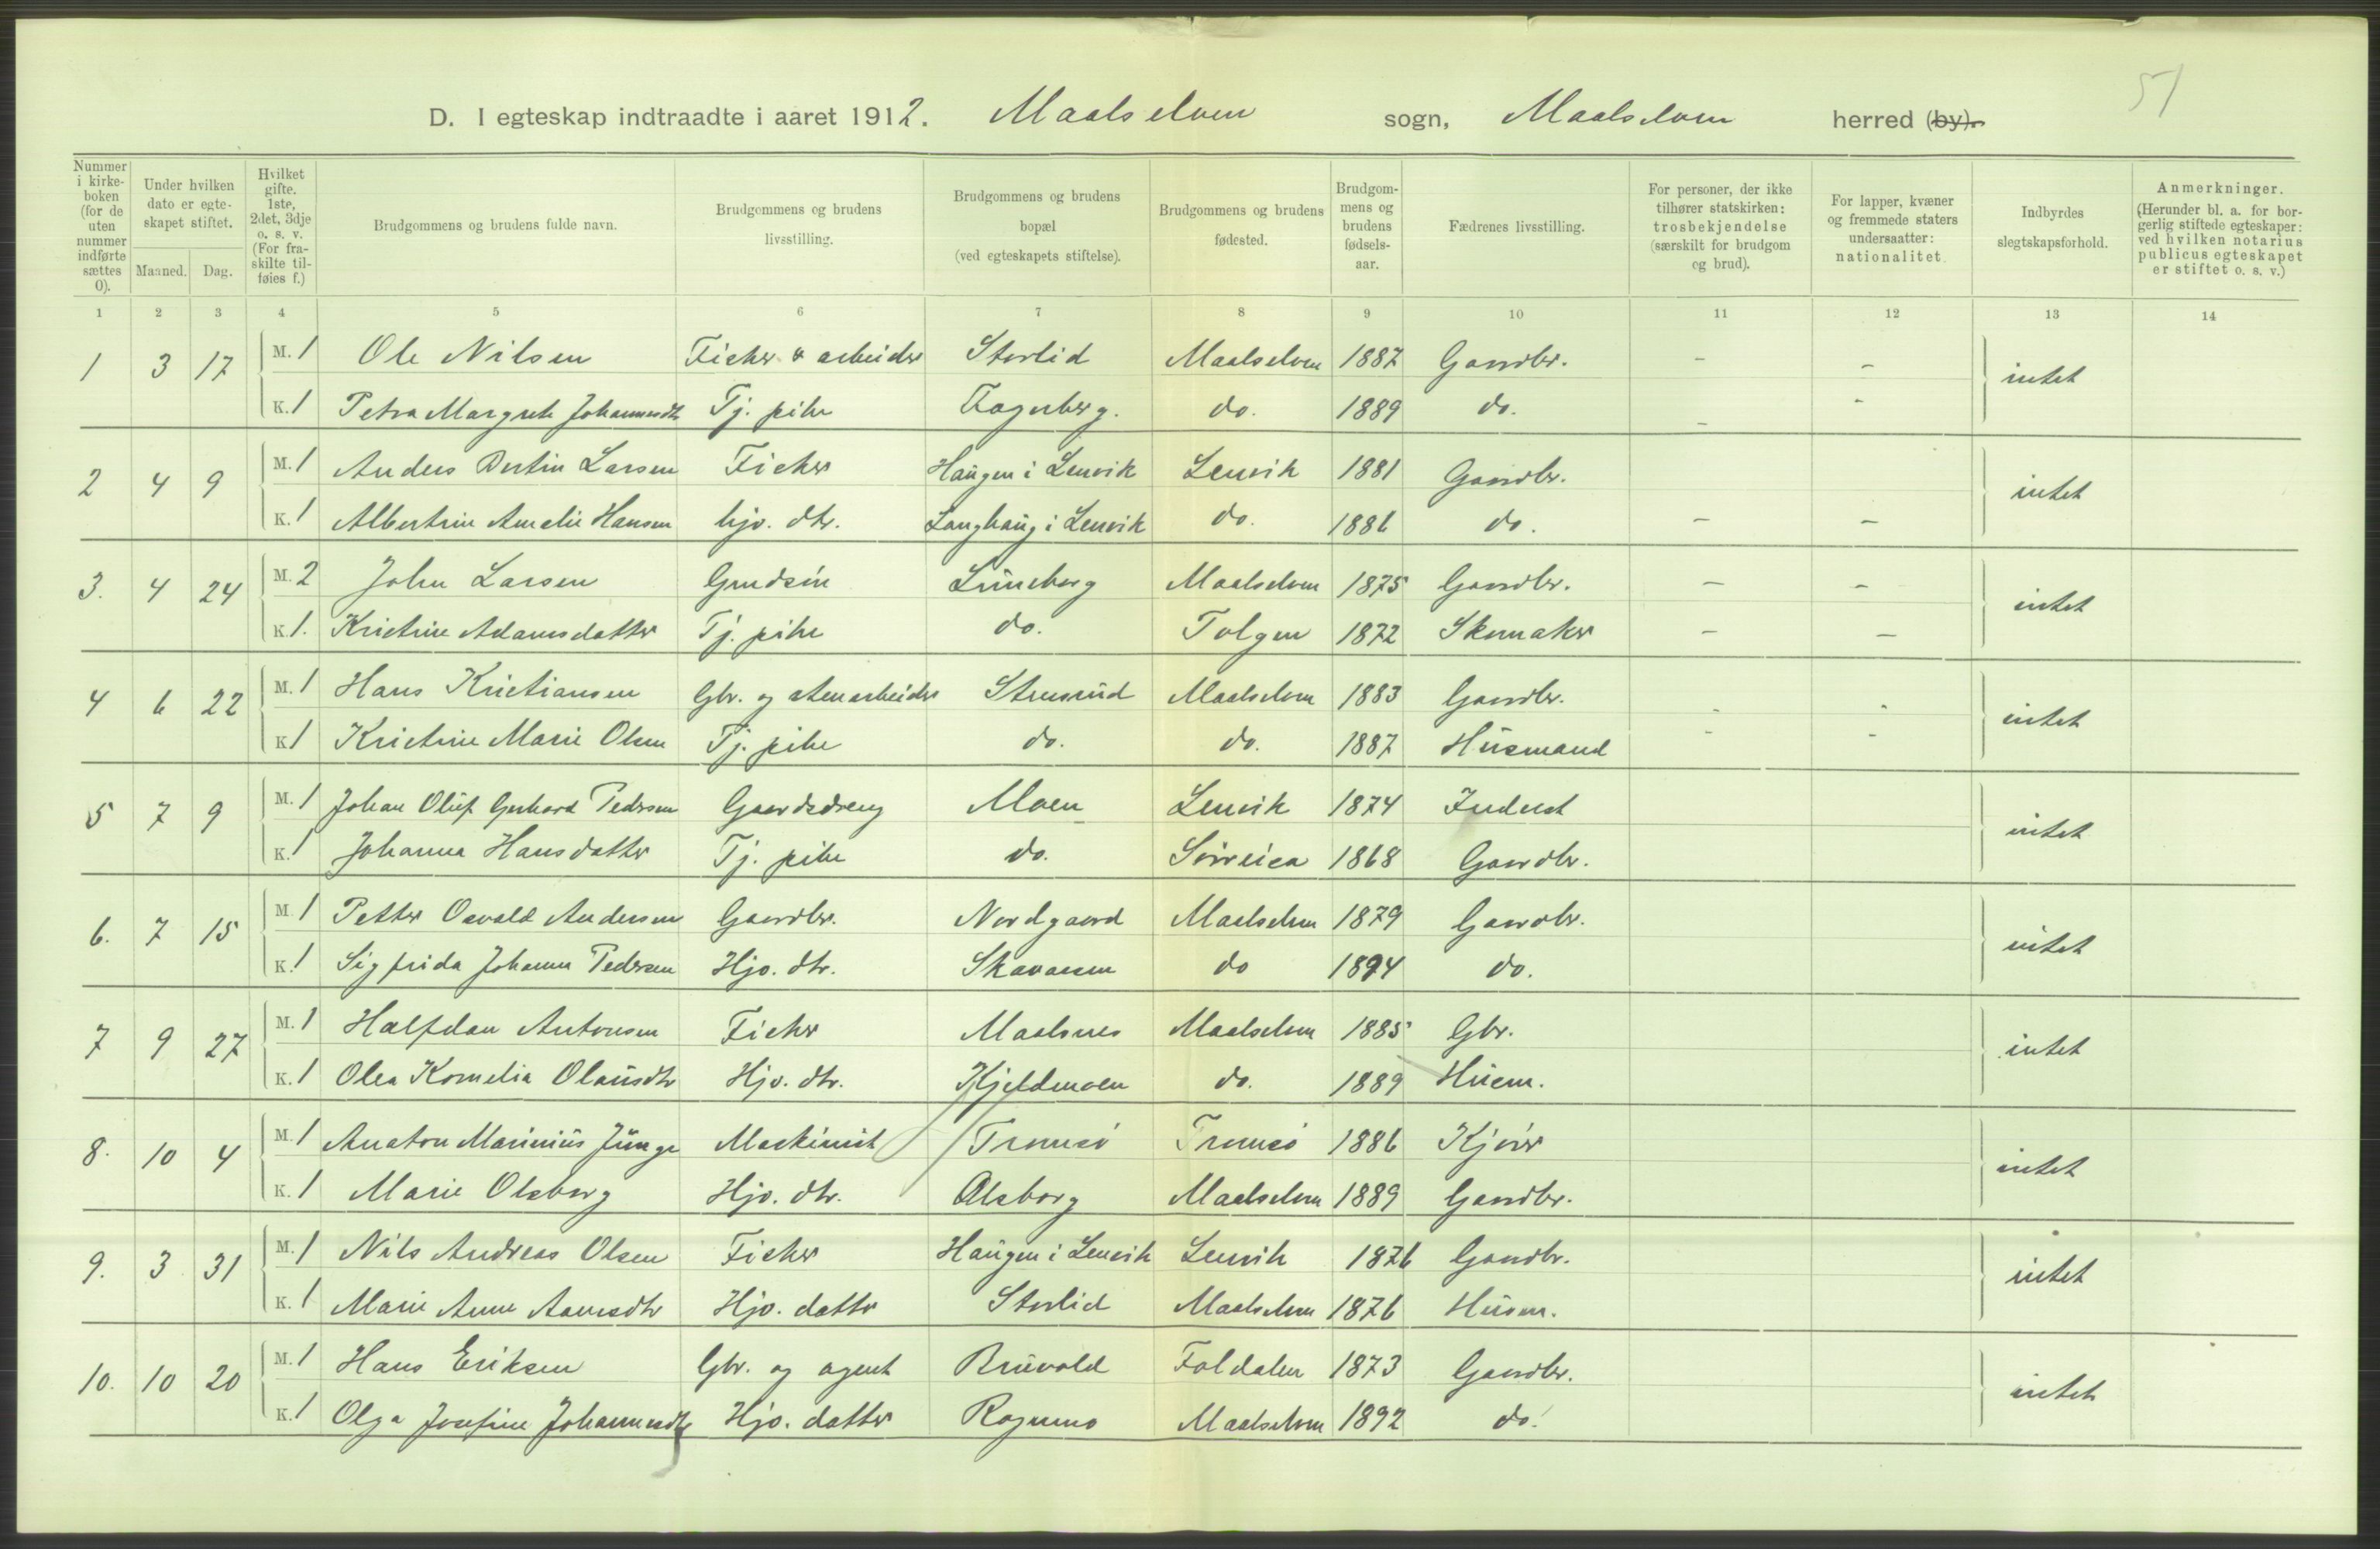 51
D. I egteskap indtraadte i aaret 1912. Maalselven sogn, Maalselven herred (by).
Nummer i kirkeboken (for de uten nummer indførte sættes 0).
Under hvilken dato er egteskapet stiftet.
Maaned. Dag.
Hvilket gifte. 1ste, 2det, 3dje o. s. v. (For fraskilte tilføies f.)
Brudgommens og brudens fulde navn.
Brudgommens og brudens livsstilling.
Brudgommens og brudens bopæl (ved egteskapets stiftelse).
Brudgommens og brudens fødested.
Brudgommens og brudens fødselsaar.
Fædrenes livsstilling.
For personer, der ikke tilhører statskirken: trosbekjendelse (særskilt for brudgom og brud).
For lapper, kvæner og fremmede staters undersaatter: nationalitet
Indbyrdes slegtskapsforhold.
Anmerkninger. (Herunder bl. a. for borgerlig stiftede egteskaper: ved hvilken notarius publicus egteskapet er stiftet o. s. v.)
1 2 3 4 5 6 7 8 9 10 11 12 13 14
1 3 17 M. 1 Ole Nilsen Fisker & arbeider Storlid Maalselven 1887 Gaardbr. - - intet
K. 1 Petra Margrete Johannesdtr Tj. pike Fagerberg. do. 1889 do. - -
2 4 9 M. 1 Anders Bertin Larsen Fisker Haugen i Lenvik Lenvik 1881 Gaardbr. intet
K. 1 Albertine Amelie Hansen hjv. dtr. Langhaug i Lenvik do. 1886 do. - -
3. 4 24 M. 2 John Larsen Grudsin Luneborg Maalselven 1875 Gaardbr. - - intet
K. 1. Kristine Adamsdatter Tj. pike do. Tolgen 1872 Skomaker - -
4 6 22 M. 1 Hans Kristiansen Gbr. og stenarbeider Stensrud Maalselven 1883 Gaardbr. - - intet
K. 1 Kristine Marie Olsen Tj. pike do. do. 1887 Husmand - -
5 7 9 M. 1 Johan Oluf Gerhard Pedersen Gaardsdreng Moen Lenvik 1874 Inderst intet
K. 1 Johanna Hansdatter Tj. pike do. Sörreisa 1868 Gaardbr.
6. 7 15 M. 1 Petter Osvald Andersen Gaardbr. Nordgaard Maalselven 1879 Gaardbr. intet
K. 1 Sigfrida Johanna Pedersen Hjv. dtr. Skavaasen do 1894 do.
7 9 27 M. 1 Halfdan Antonsen Fisker Maalsnes Maalselven 1885 Gbr. intet
K. 1 Olea Kornelia Olausdtr Hjv. dtr. Kjeldmoen do. 1889 Husm.
8. 10 4 M. 1 Anaton Marinius Junge Maskinist Tromsö Tromsö 1886 Kjörer intet
K. 1 Marie Olsborg Hjv. dtr. Olsborg Maalselven 1889 Gaardbr.
9. 3 31 M. 1 Nils Andreas Olsen Fisker Haugen i Lenvik Lenvik 1876 Gaardbr. intet
K. 1 Marie Anne Aanesdtr Hjv. datter Storlid Maalselven 1876 Husm.
10. 10 20 M. 1 Hans Eriksen Gbr. og agent Bruvold Foldalen 1873 Gaardbr. intet
K. 1 Olga Josefine Johannesdtr Hjv. datter Rognmo Maalselven 1892 do.